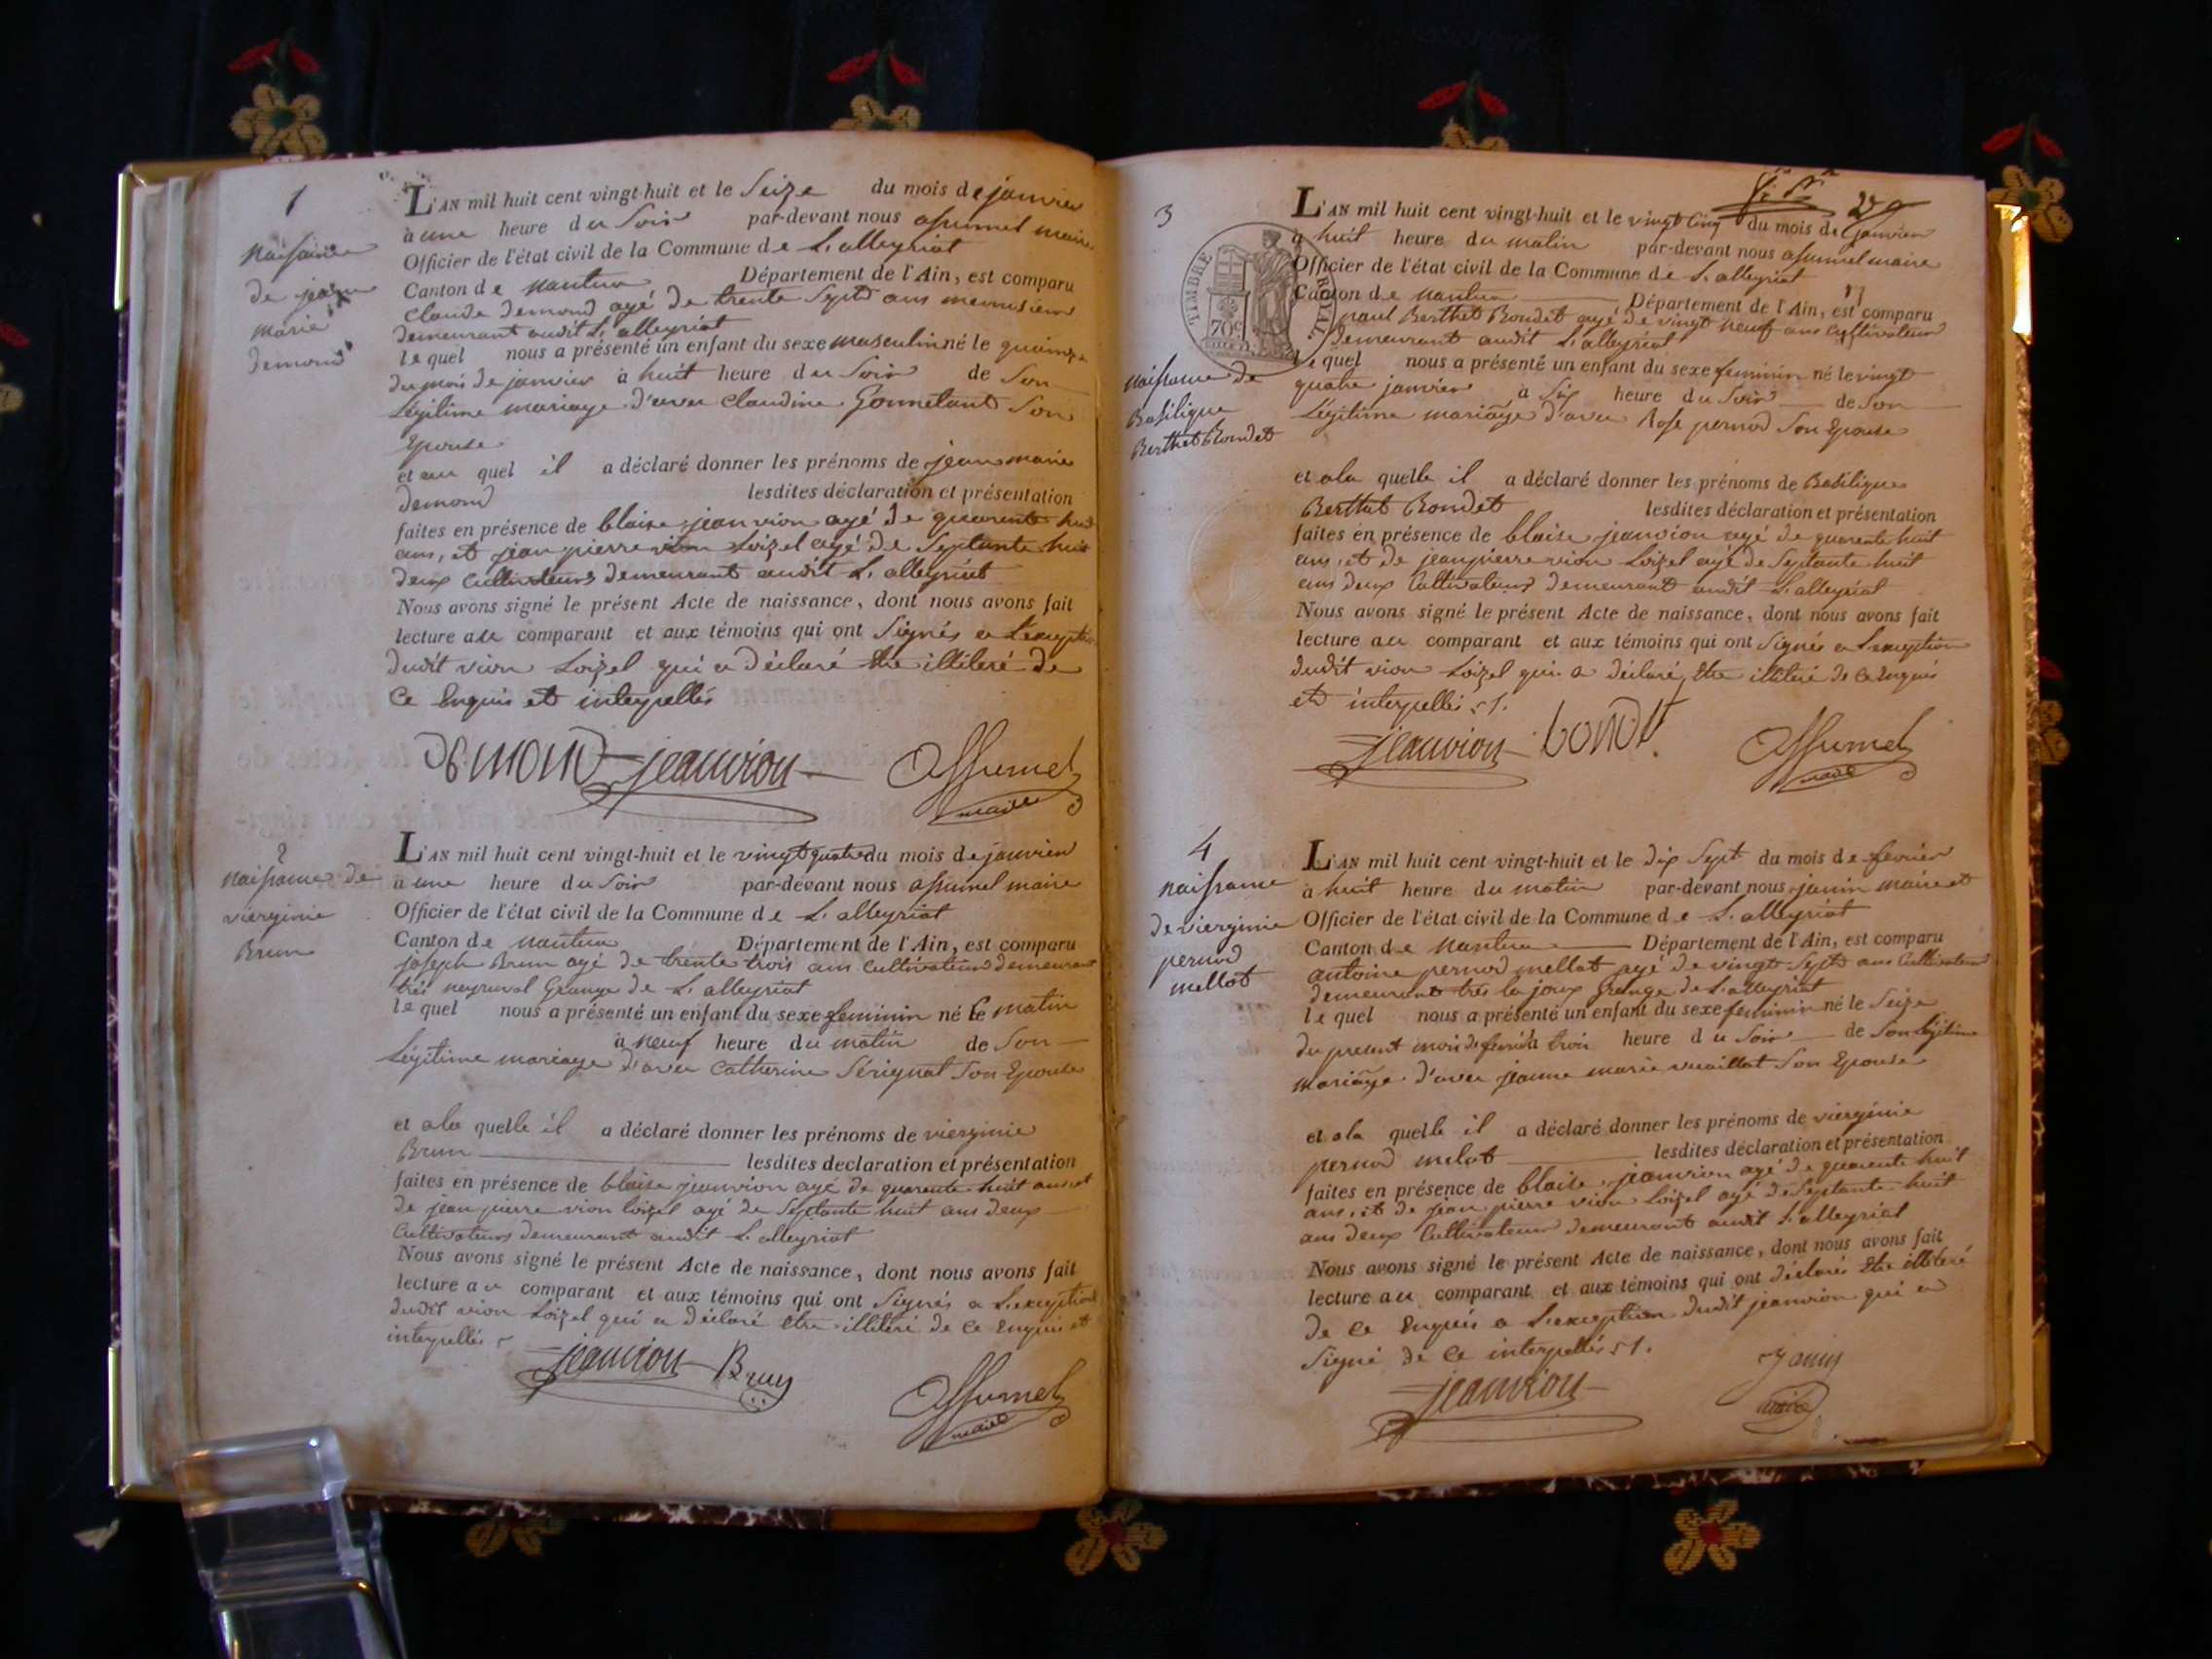 1
Naissance
de jean
marie
demond
L'AN mil huit cent vingt-huit et le Seize du mois de janvier
à une heure du Soir par-devant nous assumel maire
Officier de l'état civil de la Commune de St. alleyriat
Canton de nantua Département de l'Ain, est comparu
Claude demond agé de trente Sept ans menusier
demeurant audit St. alleyriat
lequel nous a présenté un enfant du sexe masculin né le quinze
du mois de janvier à huit heure du Soir de Son
Légitime mariage d'avec Claudine Gonnetant Son
Epouse
et au quel il a déclaré donner les prénoms de jean marie
demond lesdites déclaration et présentation
faites en présence de blaise jeanvion agé de quarente huit
ans, et jean pierre vion Loizel agé de Septante huit
deux Cultivateurs demeurant audit St. alleyriat
Nous avons signé le présent Acte de naissance, dont nous avons fait
lecture au comparant et aux témoins qui ont Signés a L'exception
dudit vion Loizel qui a déclaré etre illiteré de
Ce Enquis et interpellés
demond jeanvion assumel
maire
2
naissance de
vierginie
Brun
L'AN mil huit cent vingt-huit et le vingt quatre du mois de janvier
à une heure du Soir par-devant nous assumel maire
Officier de l'état civil de la Commune de St. alleyriat
Canton de nantua Département de l'Ain, est comparu
joseph Brun agé de trente trois ans Cultivateur demeurant
Grange de St. alleyriat
lequel nous a présenté un enfant du sexe feminin né le matin
à neuf heure du matin de Son
Légitime mariage d'avec Catherine Sérignat Son Epouse
et a la quelle il a déclaré donner les prénoms de vierginie
Brun lesdites declaration et présentation
faites en présence de blaise jeanvion agé de quarente huit ans et
de jean pierre vion loizel agé de Septante huit ans deux
Cultivateurs demeurant audit St. alleyriat
Nous avons signé le présent Acte de naissance, dont nous avons fait
lecture au comparant et aux témoins qui ont Signés a L'exception
dudit vion Loizel qui a déclaré etre illiteré de Ce Enquis et
interpellés
jeanvion Brun assumel
maire
3
TIMBRE ROYAL
70c
naissance de
Basilique
Berthet Bondet
L'AN mil huit cent vingt-huit et le vingt Cinq du mois de janvier
à huit heure du matin par-devant nous assumel maire
Officier de l'état civil de la Commune de St. alleyriat
Canton de nantua Département de l'Ain, est comparu
paul Berthet Bondet agé de vingt neuf ans Cultivateur
demeurant audit St. alleyriat
lequel nous a présenté un enfant du sexe feminin né le vingt
quatre janvier à Six heure du Soir de Son
Légitime mariage d'avec Rose pernod Son Epouse
et a la quelle il a déclaré donner les prénoms de Basilique
Berthet Bondet lesdites déclaration et présentation
faites en présence de blaise jeanvion agé de quarente huit
ans, et de jean pierre vion Loizel agé de Septante huit
ans deux Cultivateurs demeurant audit St. alleyriat
Nous avons signé le présent Acte de naissance, dont nous avons fait
lecture au comparant et aux témoins qui ont Signés a L'exception
dudit vion Loizel qui a déclaré etre illiteré de Ce Enquis
et interpellés
jeanvion bondet assumel
maire
4
naissance
de vierginie
pernod
mellot
L'AN mil huit cent vingt-huit et le dix Sept du mois de fevrier
à huit heure du matin par-devant nous janin maire et
Officier de l'état civil de la Commune de St. alleyriat
Canton de Nantua Département de l'Ain, est comparu
antoine pernod mellot agé de vingt Sept ans Cultivateur
demeurant la joux Grange de St. alleyriat
lequel nous a présenté un enfant du sexe feminin né le Seize
du present mois de fevrier à trois heure du Soir de Son légitime
mariage d'avec jeanne marie vuaillat Son Epouse
et a la quelle il a déclaré donner les prénoms de vierginie
pernod melot lesdites déclaration et présentation
faites en présence de blaise jeanvion agé de quarente huit
ans, et de jean pierre vion Loizel agé de Septante huit
ans deux Cultivateurs demeurant audit St. alleyriat
Nous avons signé le présent Acte de naissance, dont nous avons fait
lecture au comparant et aux témoins qui ont déclarés etre illiteré
de Ce Enquis a L'exception dudit jeanvion qui a
Signé de Ce interpellés
jeanvion janin
maire